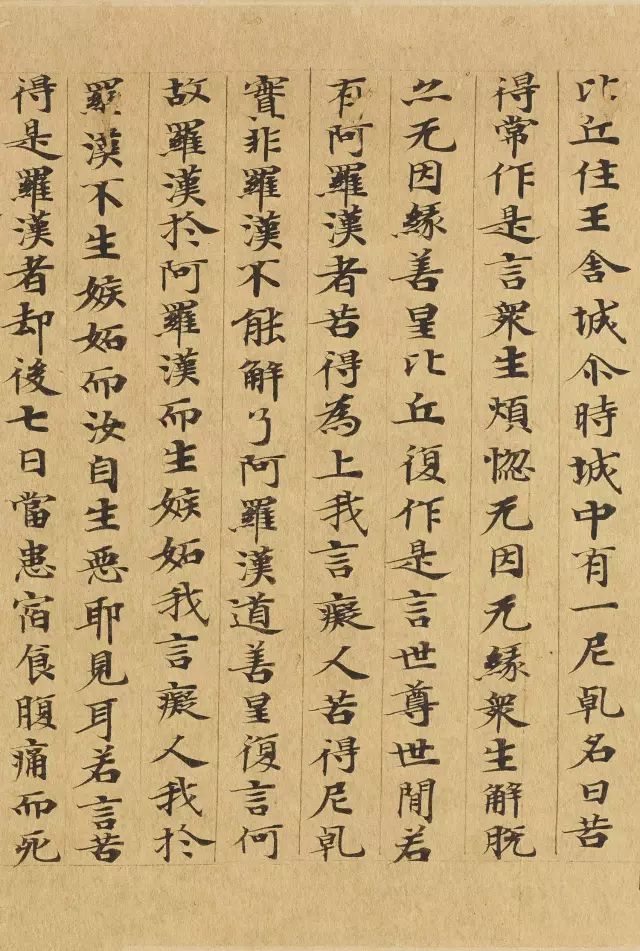 比丘住王舍城尒時城中有一尼乹名曰苦
得常作是言衆生煩惚无因无緣衆生解脫
亦无因緣善星比丘復作是言世尊世閒若
有阿羅漢者苦得為上我言癡人苦得尼乹
實非羅漢不能解了阿羅漢道善星復言何
故羅漢於阿羅漢而生嫉妬我言癡人我於
羅漢不生嫉妬而汝自生惡耶見耳若言苦
得是羅漢者却後七日當患宿食腹痛而死